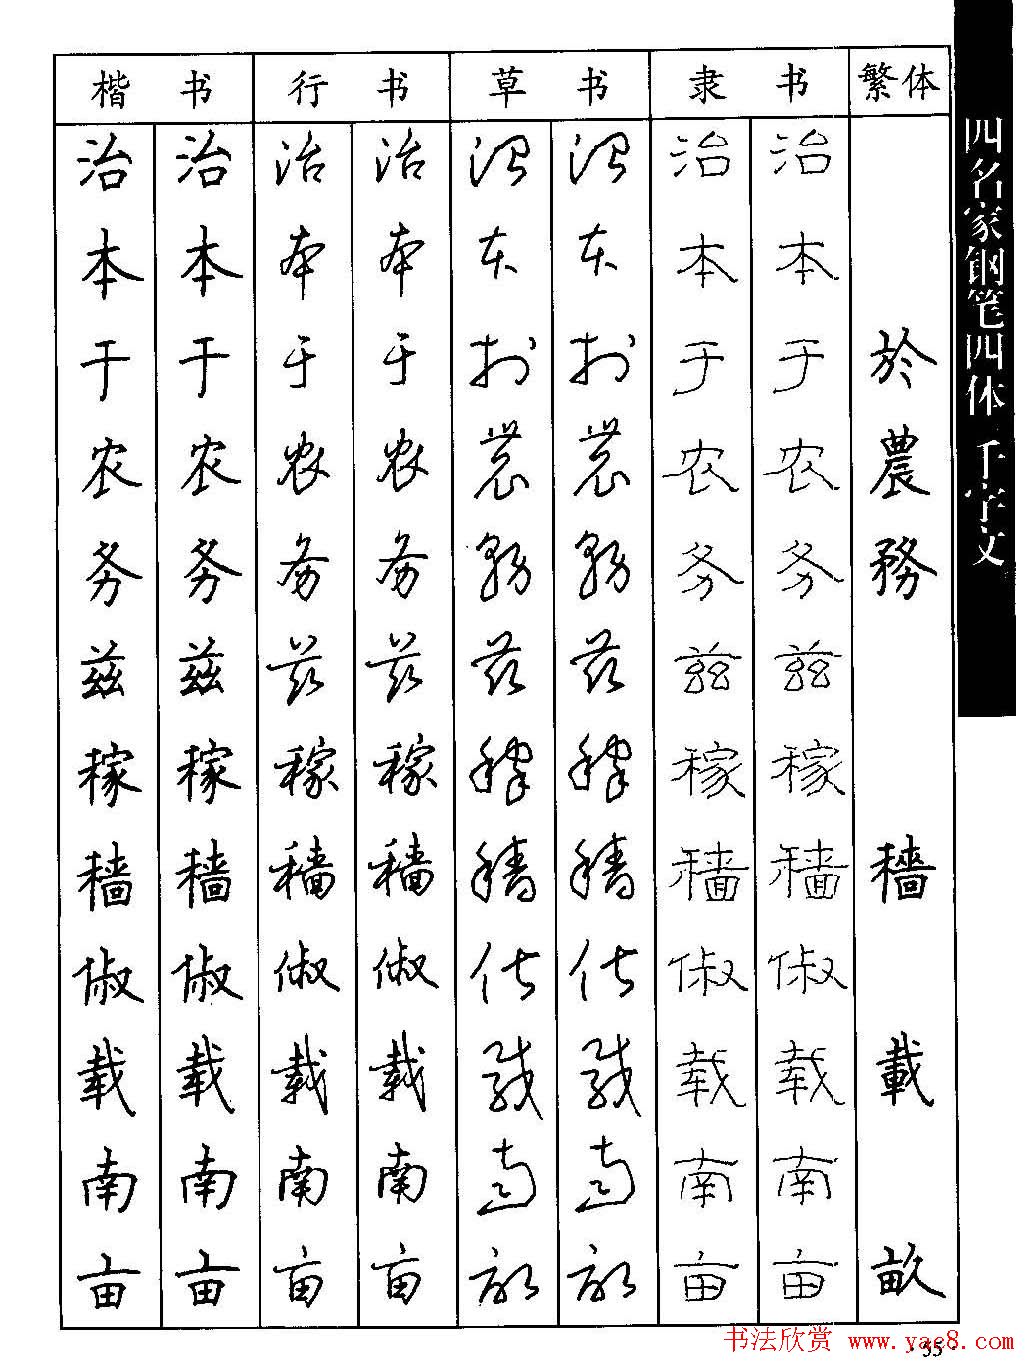 楷书 行书 草书 隶书 繁体
治 治 治 治 治 治 治 治
本 本 本 本 本 本 本 本
于 于 于 于 於 於 于 于 於
农 农 农 农 農 農 农 农 農
务 务 务 务 務 務 务 务 務
兹 兹 兹 兹 兹 兹 兹 兹
稼 稼 稼 稼 稼 稼 稼 稼
穑 穑 穑 穑 穑 穑 穑 穑 穡
俶 俶 俶 俶 俶 俶 俶 俶
载 载 载 载 载 载 载 载 載
南 南 南 南 南 南 南 南
亩 亩 亩 亩 畝 畝 亩 亩 畝
四名家钢笔四体千字文
书法欣赏 www.yac8.com
·55·